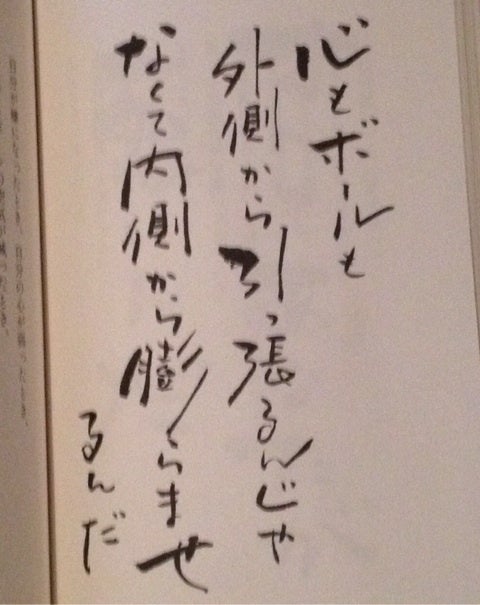 心もボールも
外側から引っ張るんじゃ
なくて内側から膨らませ
るんだ